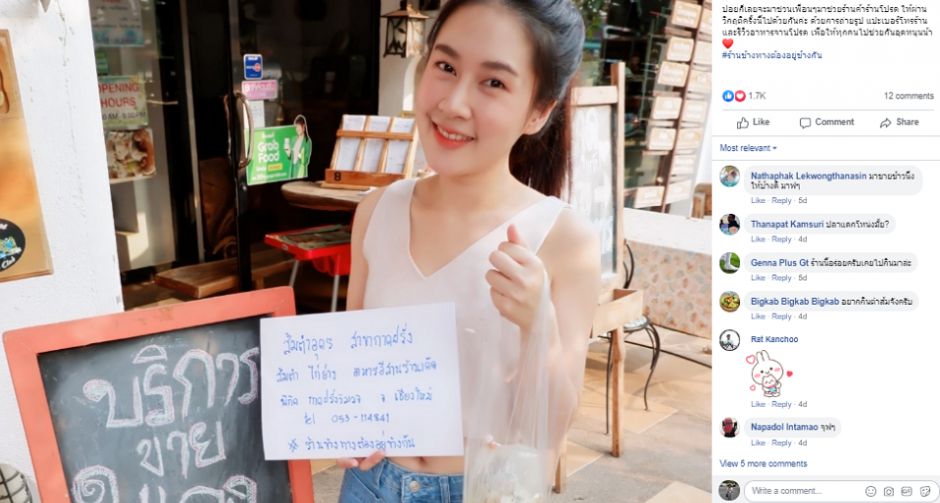 ปอยก็เลยจะมาชวนเพื่อนๆมาช่วยร้านค้าร้านโปรด ให้ผ่าน
วิกฤติครั้งนี้ไปด้วยกันค่ะ ด้วยการถ่ายรูป แปะเบอร์โทรร้าน
และรีวิวอาหารจานโปรด เพื่อให้ทุกคนไปช่วยกันอุดหนุนน้า
#ร้านข้างทางต้องอยู่ข้างกัน
1.7K
12 comments
Like
Comment
Share
Most relevant
Nathaphak Lekwongthanasin มาขายข้าวนึ่ง
ให้บ้างดิ มาฟๆ
Like · Reply · 5d
Thanapat Kamsuri ปลาแดกโหน่งมั้ย?
Like · Reply · 4d
Genna Plus Gt ร้านนี้อร่อยครับเคยไปกินมาละ
Like · Reply · 5d
Bigkab Bigkab Bigkab อยากกินตำส้มจังครับ
Like · Reply · 4d
Rat Kanchoo
Like · Reply · 4d
Napadol Intamao จุฟๆ
Like · Reply · 4d
View 5 more comments
Write a comment...
OPENING
HOURS
Grab
Food
ส้มตำอุดร สาขากาดฝรั่ง
ส้มตำ ไก่ย่าง อาหารอีสานร้านเด็ด
พิกัด กาดฝรั่ง จ เชียงใหม่
tel 053-114841
* ร้านข้างทางต้องอยู่ข้างกัน
บริการ
ขาย